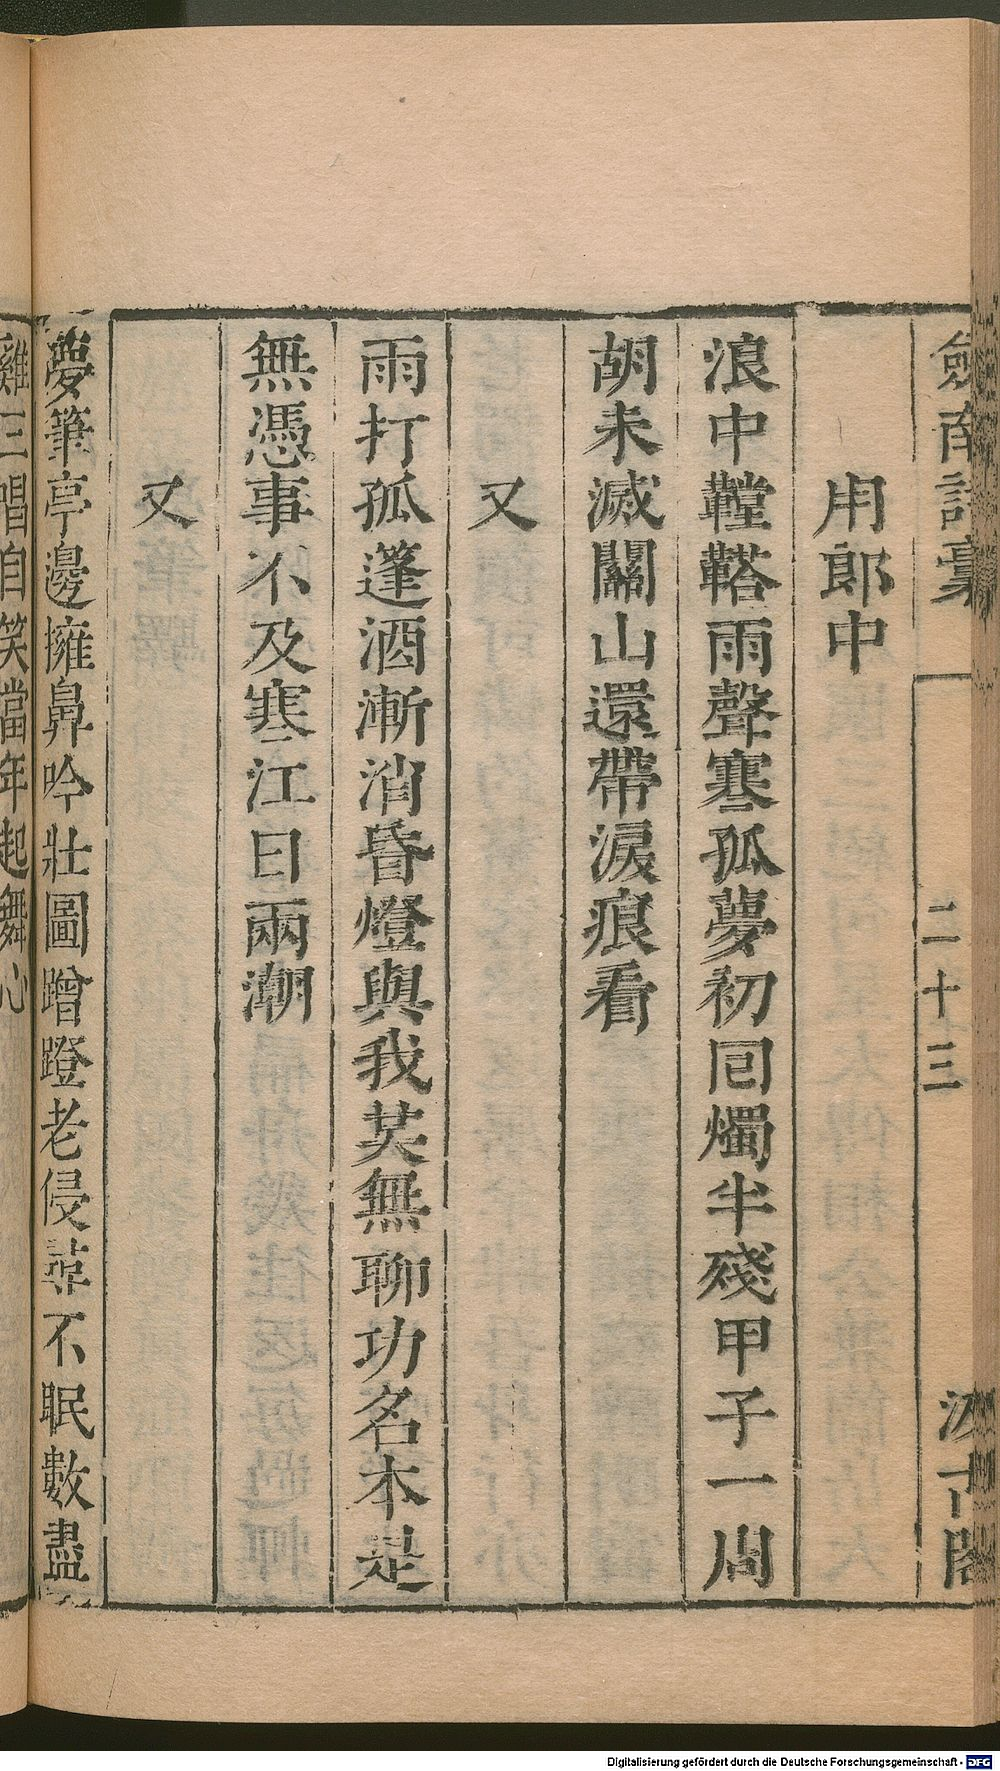 劒南詩稾
二十三
汲古閣
用郎中
浪中鞺鞳雨聲寒孤夢初囘燭半殘甲子一周
胡未滅關山還帶淚痕看
又
雨打孤蓬酒漸消昏燈與我共無聊功名本是
無憑事不及寒江日兩潮
又
夢筆亭邊擁鼻吟壯圖蹭蹬老侵尋不眠數盡
雞三唱自笑當年起舞心
Digitalisierung gefördert durch die Deutsche Forschungsgemeinschaft - DFG